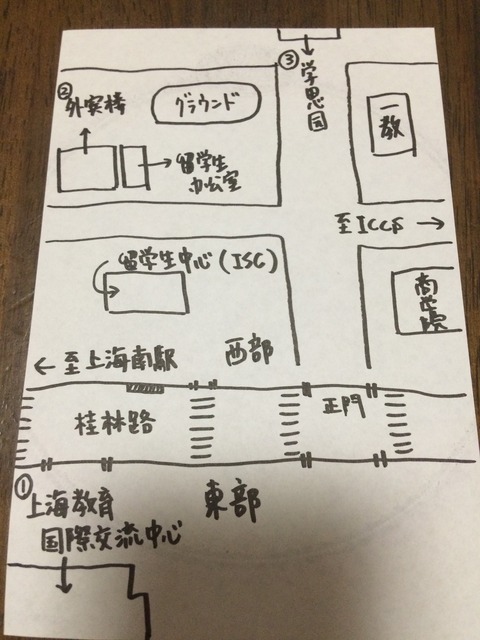 ③
学思园
②
外宾楼
グラウンド
一教
留学生
办公室
至ICCS →
留学生中心(ISC)
商学院
← 至上海南駅
西部
正門
桂林路
①
上海教育
国際交流中心
東部